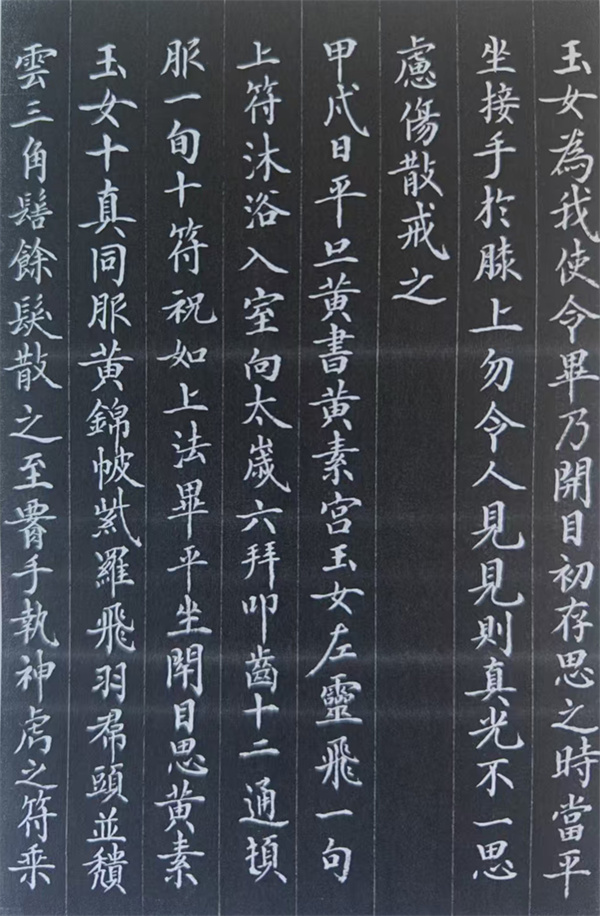 玉女為我使令畢乃開目初存思之時當平
坐接手於膝上勿令人見見則真光不一思
慮傷散戒之
甲戌日平旦黃書黃素宮玉女左靈飛一句
上符沐浴入室向太歲六拜叩齒十二通頓
服一旬十符祝如上法畢平坐閉目思黃素
玉女十真同服黃錦帔紫羅飛羽帬頭並頽
雲三角髻餘髮散之至腰手執神虎之符乘